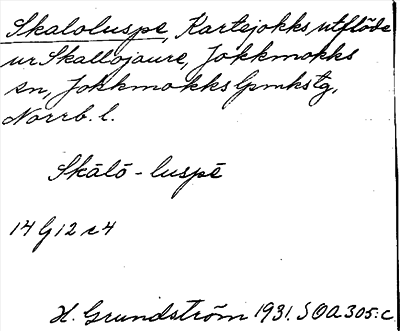 Skaloluspe, Kartejokks utflöde
ur Skallojaure, Jokkmokks
sn, Jokkmokks lpmkstg,
Norrb. l.
Skālō - luspē
14 G 12 c 4
H. Grundström 1931. SOA 305:c